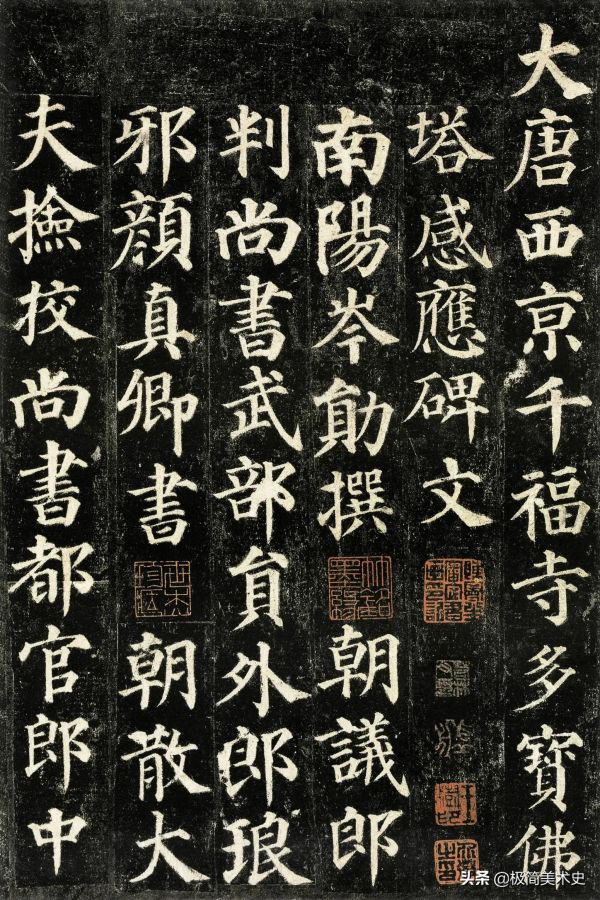 大唐西京千福寺多寶佛
塔感應碑文
南陽岑勛撰 朝議郎
判尚書武部員外郎琅
邪顏真卿書 朝散大
夫撿挍尚書都官郎中
头条 @极简美术史